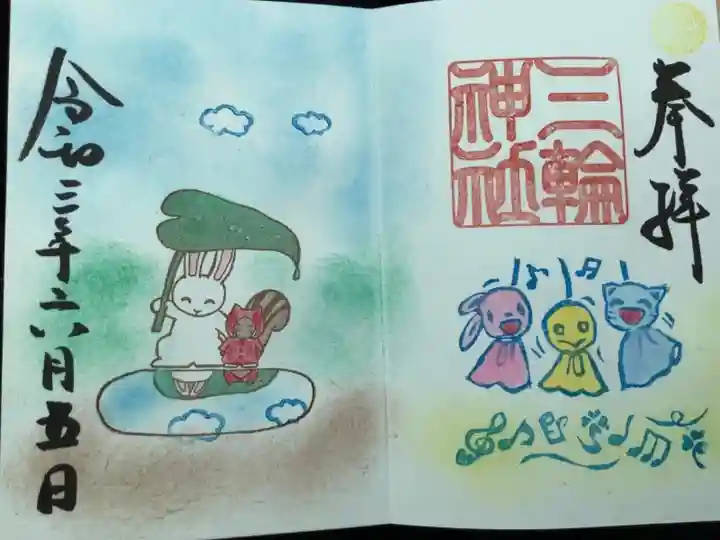 奉拝
三輪神社
令和三年六月五日